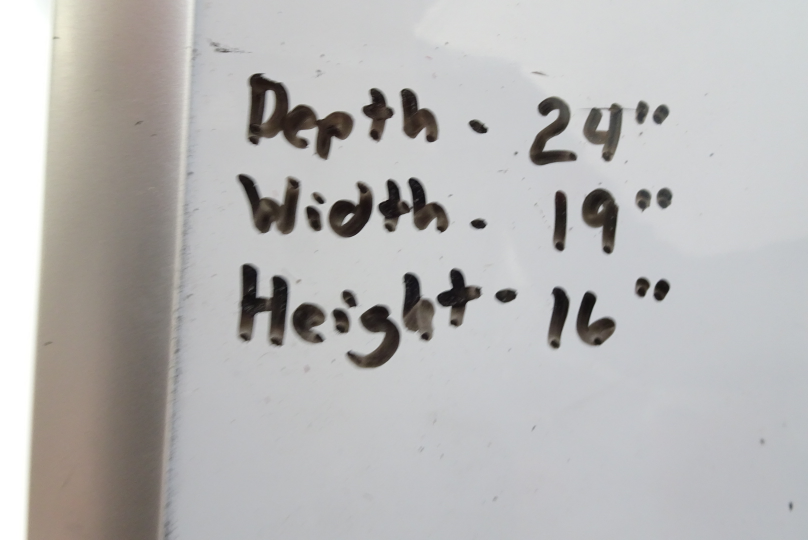 Depth - 24"
Width - 19"
Height - 16"